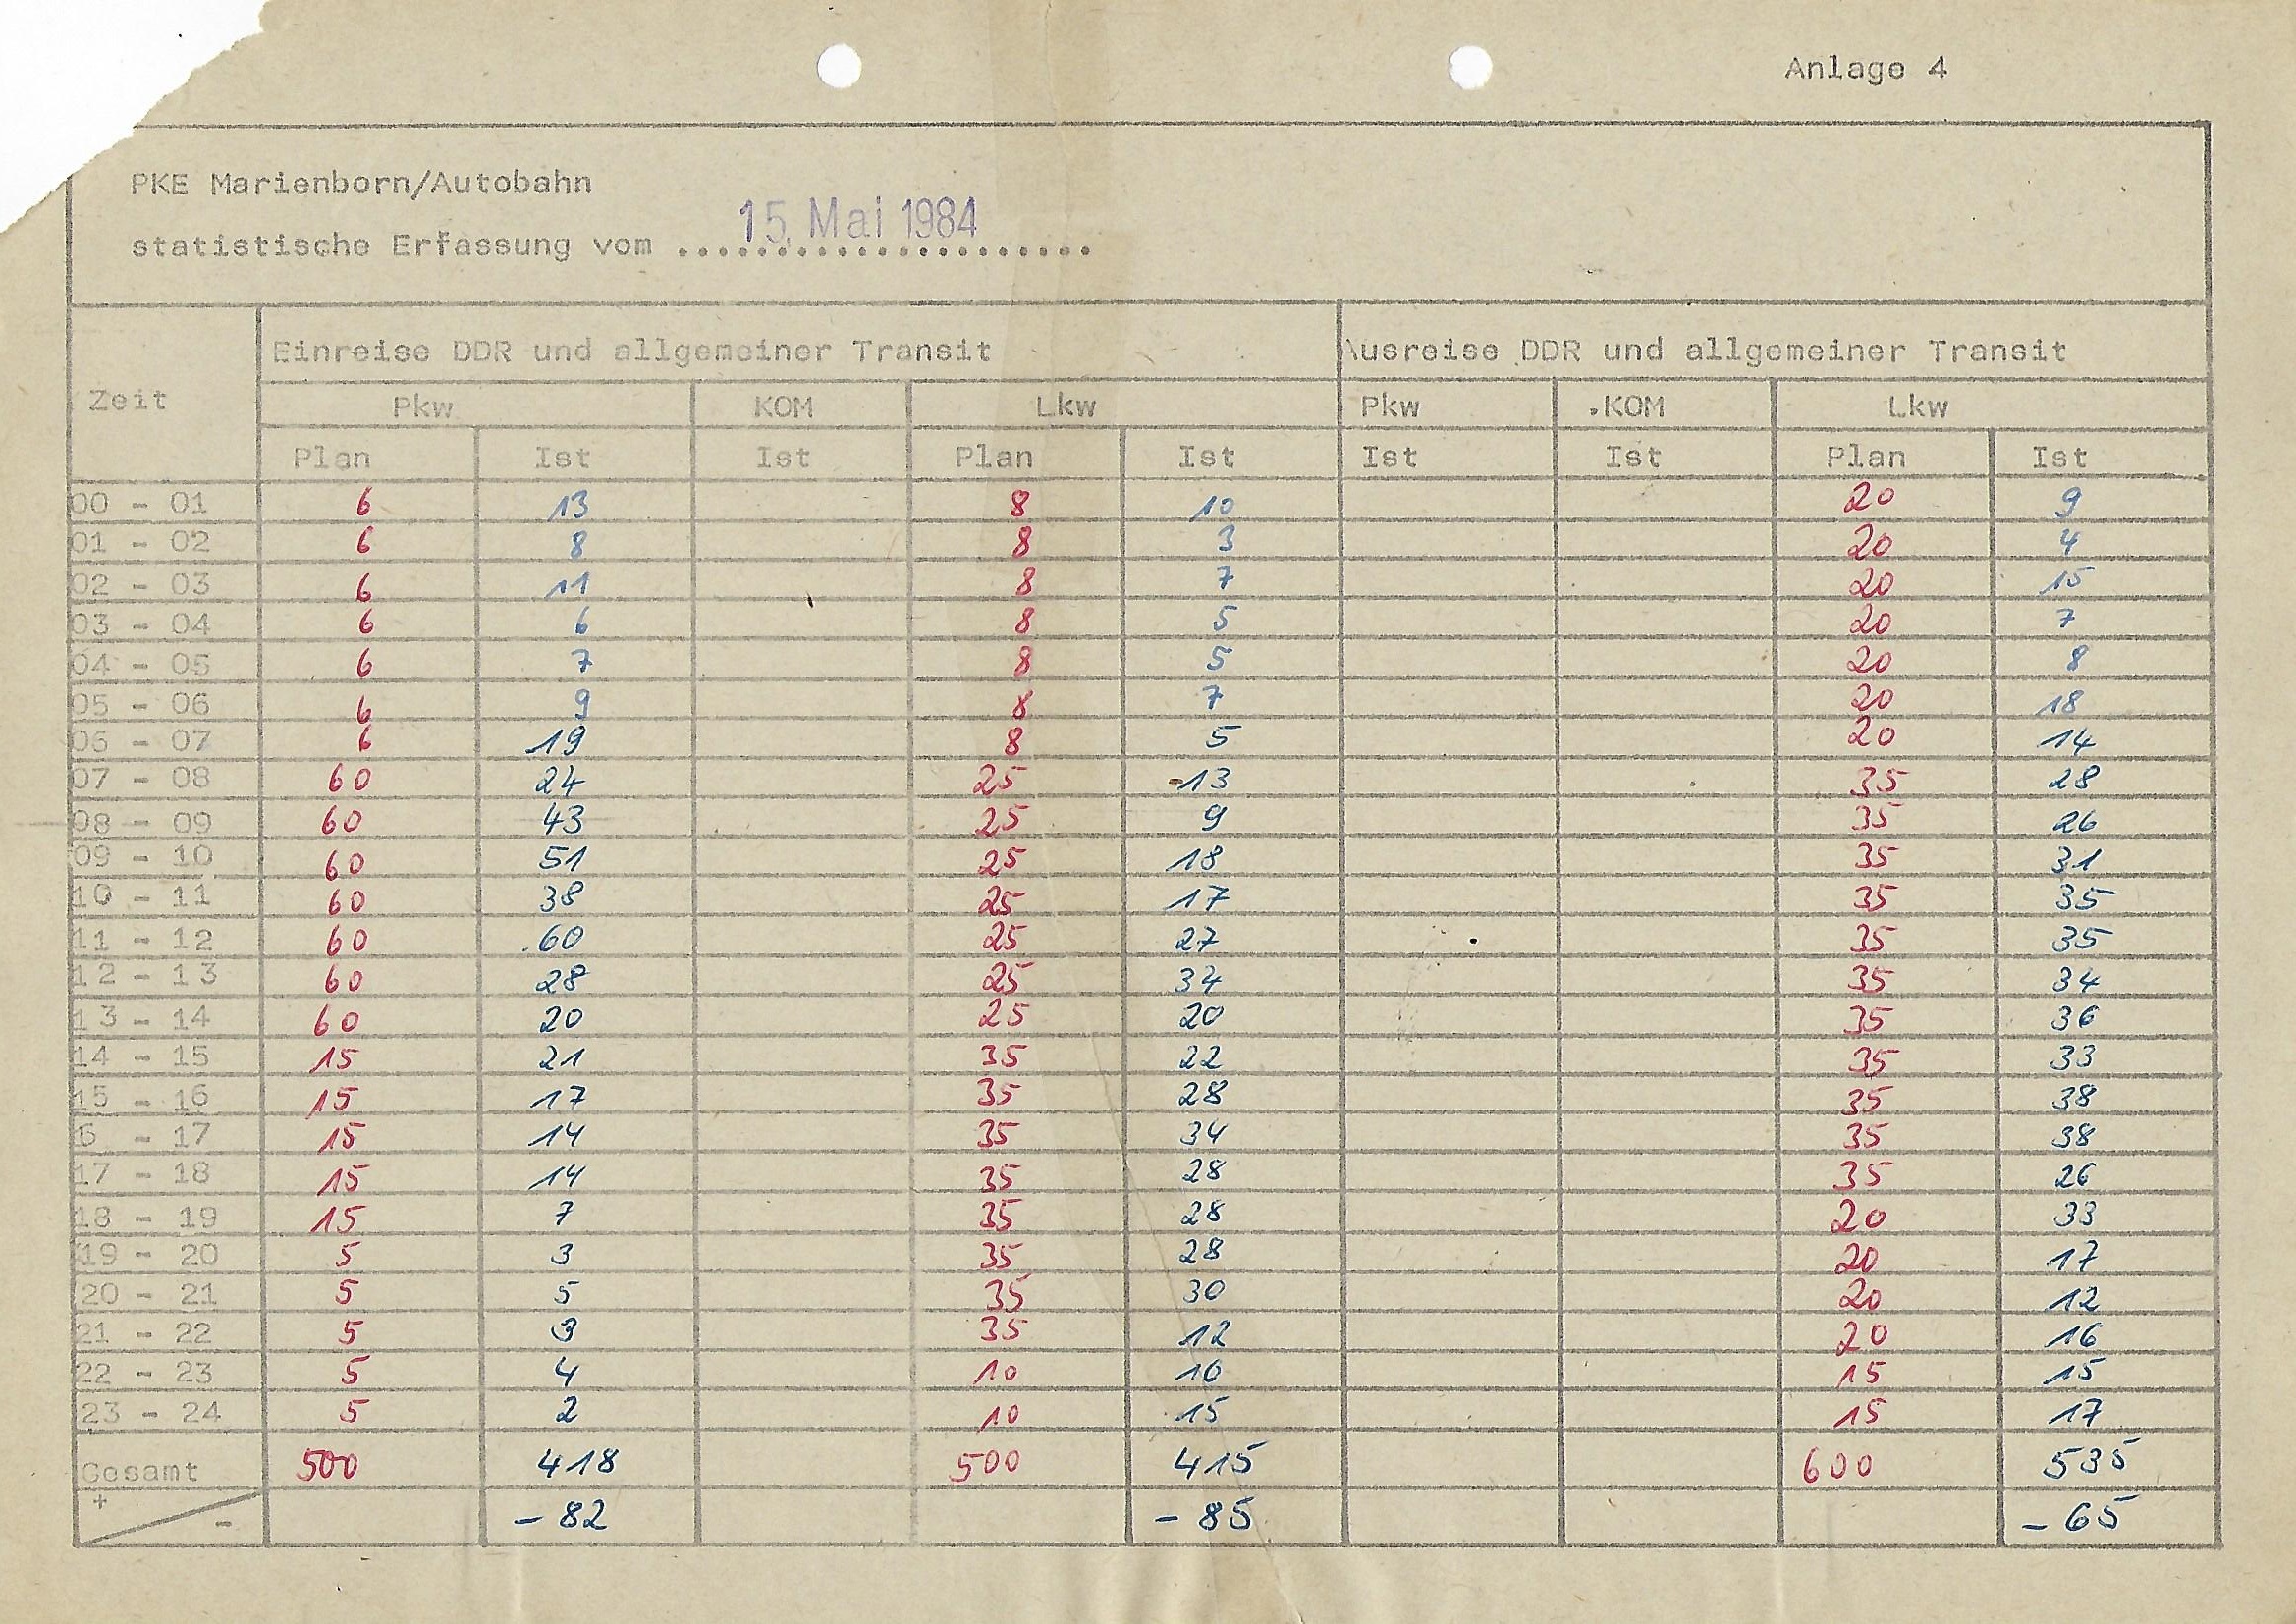 Anlage 4
PKE Marienborn/Autobahn
statistische Erfassung vom 15. Mai 1984
Zeit Einreise DDR und allgemeiner Transit Ausreise DDR und allgemeiner Transit
Pkw KOM Lkw Pkw .KOM Lkw
Plan Ist Ist Plan Ist Ist Ist Plan Ist
00 - 01 6 13 8 10 20 9
01 - 02 6 8 8 3 20 4
02 - 03 6 11 8 7 20 15
03 - 04 6 6 8 5 20 7
04 - 05 6 7 8 5 20 8
05 - 06 6 9 8 7 20 18
06 - 07 6 19 8 5 20 14
07 - 08 60 24 25 13 35 28
08 - 09 60 43 25 9 35 26
09 - 10 60 51 25 18 35 31
10 - 11 60 38 25 17 35 35
11 - 12 60 60 25 27 35 35
12 - 13 60 28 25 34 35 34
13 - 14 60 20 25 20 35 36
14 - 15 15 21 35 22 35 33
15 - 16 15 17 35 28 35 38
6 - 17 15 14 35 34 35 38
17 - 18 15 14 35 28 35 26
18 - 19 15 7 35 28 20 33
19 - 20 5 3 35 28 20 17
20 - 21 5 5 35 30 20 12
21 - 22 5 3 35 12 20 16
22 - 23 5 4 10 10 15 15
23 - 24 5 2 10 15 15 17
Gesamt 500 418 500 415 600 535
+ - - 82 - 85 - 65